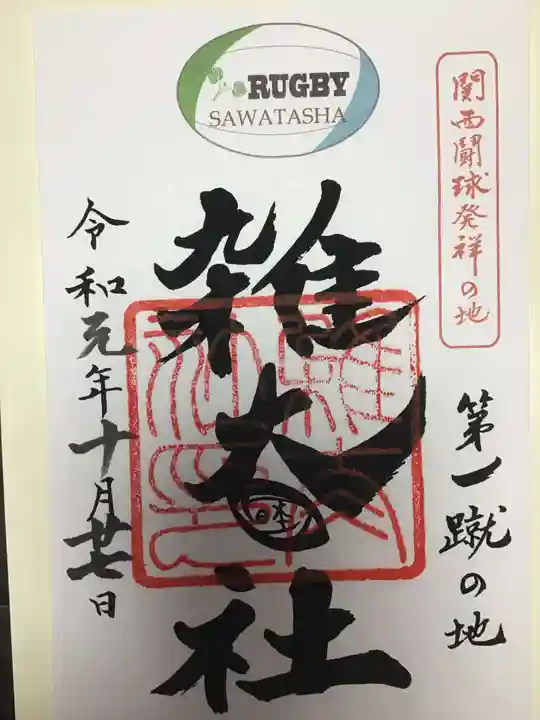 RUGBY
SAWATASHA
関西闘球発祥の地
第一蹴の地
雑太社
令和元年十月廿七日